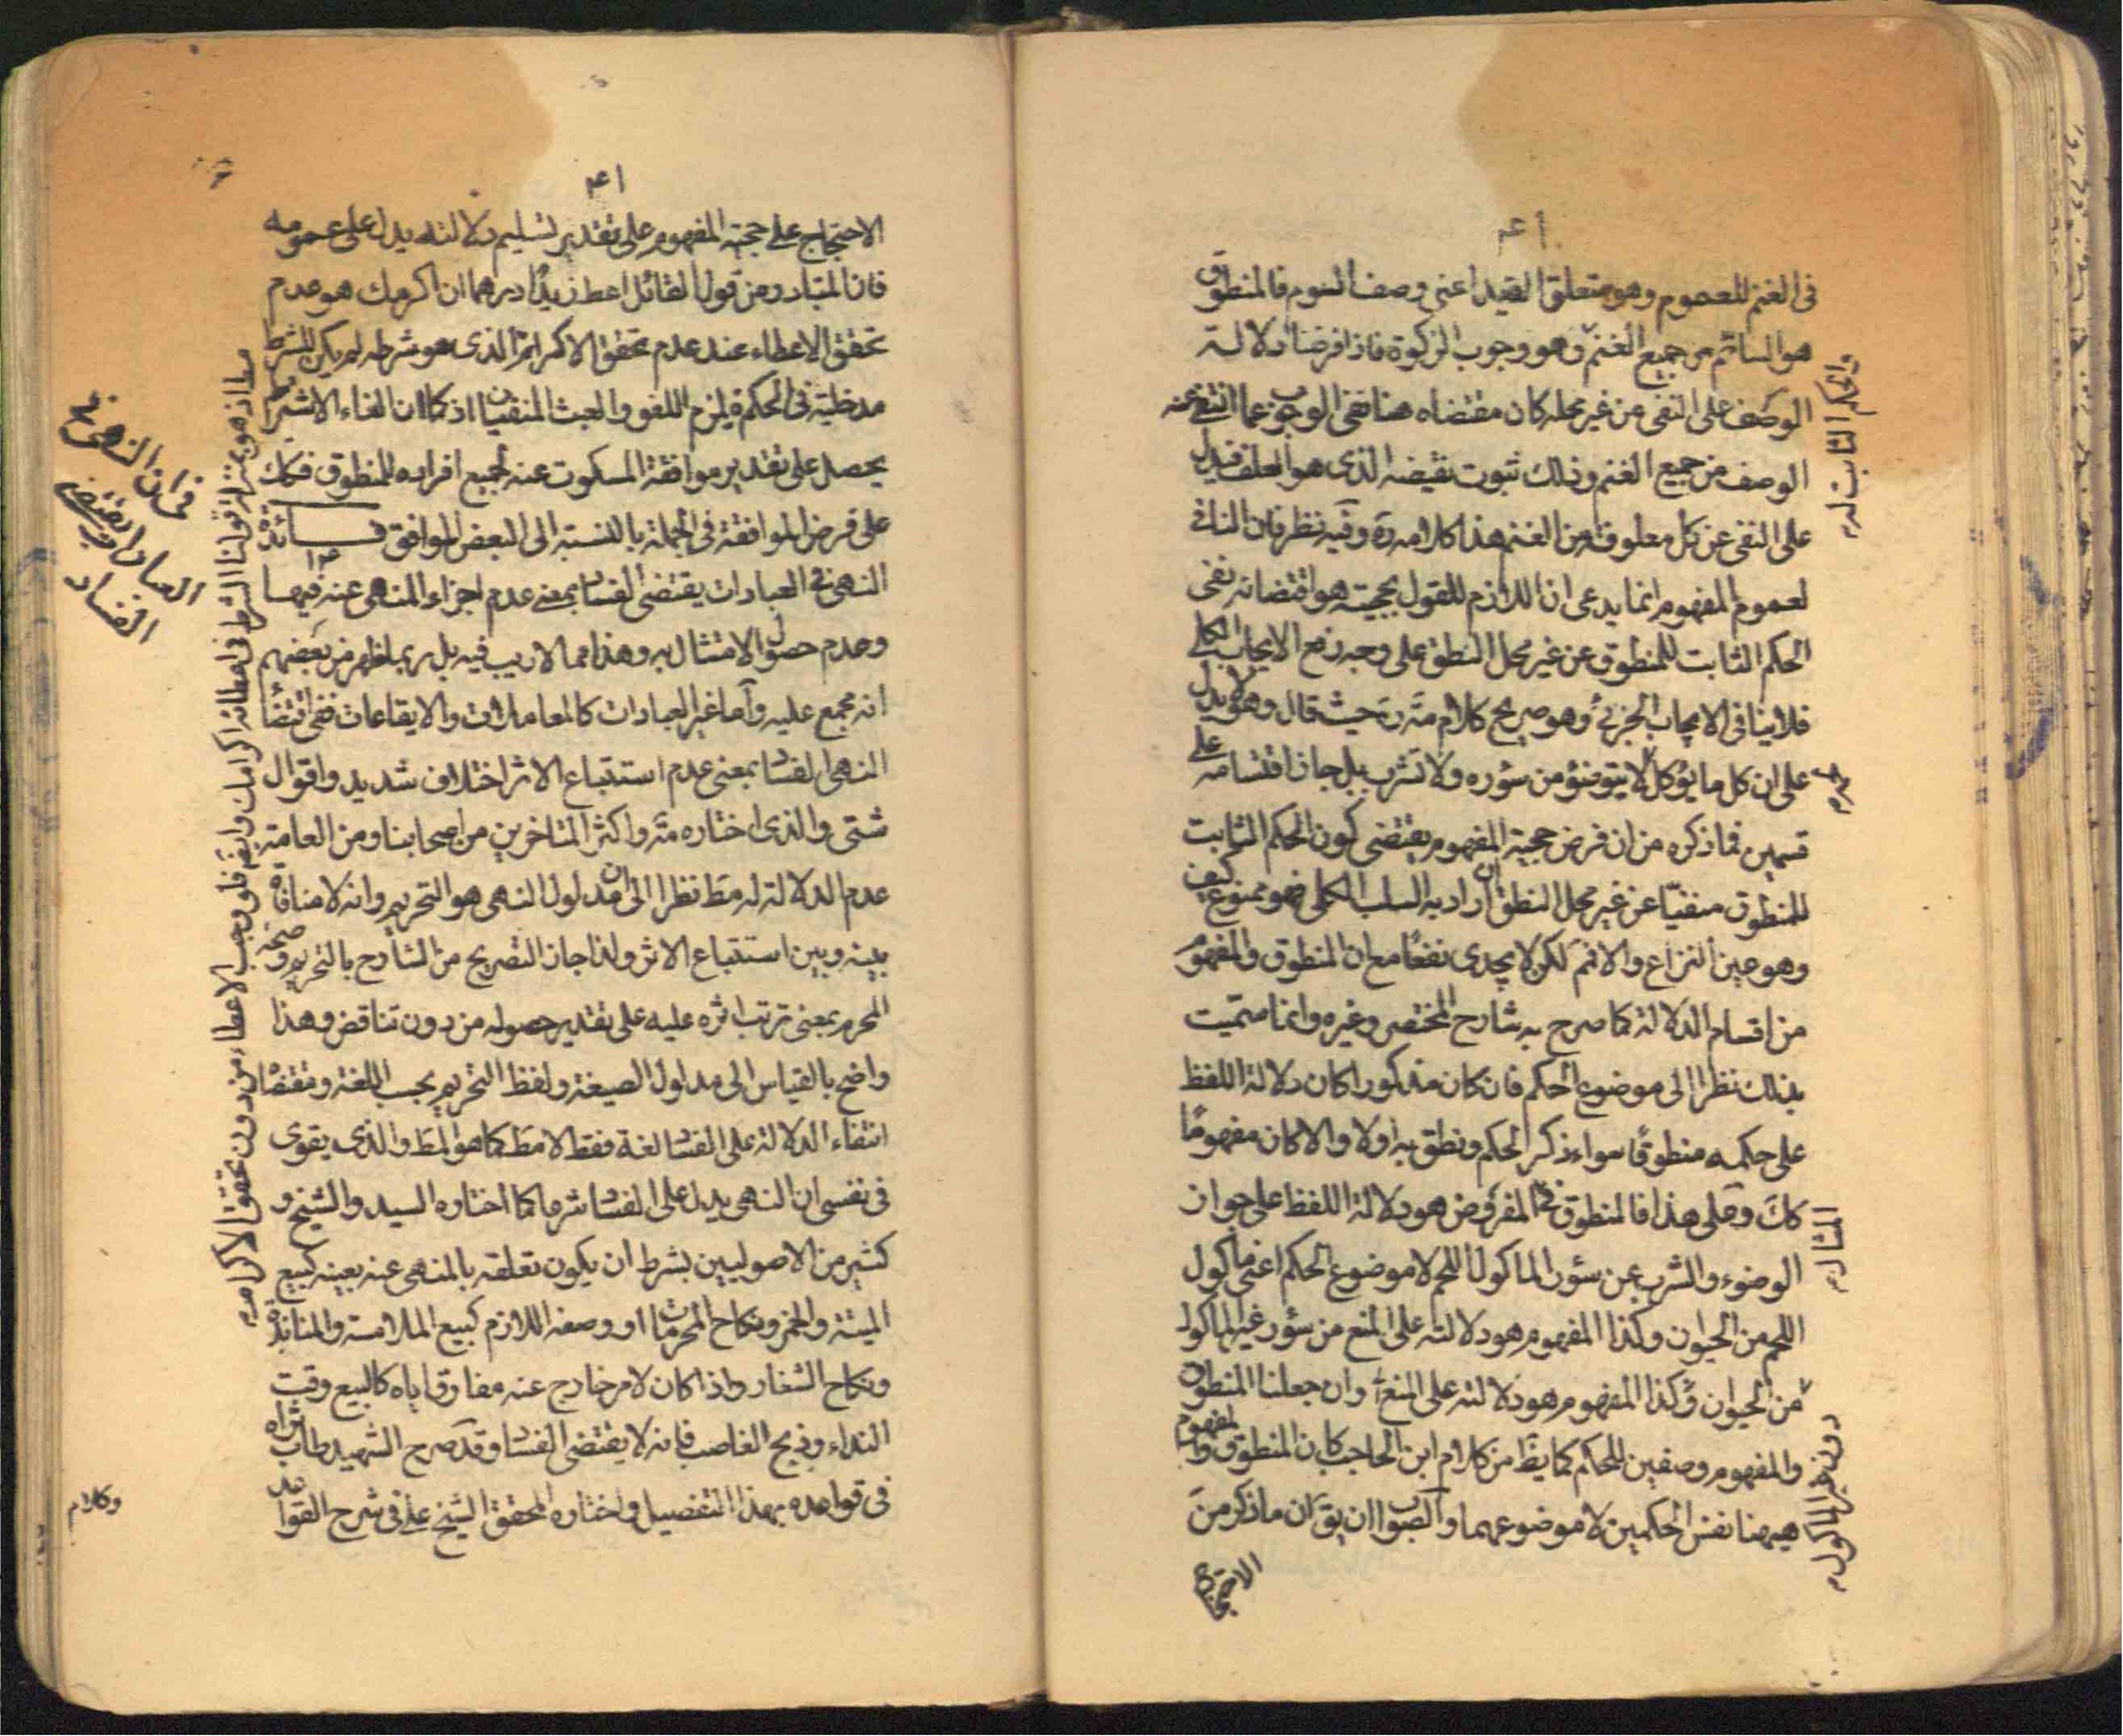 في الغنم للعموم وهو متعلق القيد اعني وصف السوم فالمنطوق
هو السائم من جميع الغنم وهو وجوب الزكوة فاذا فرضنا دلالة
والحكم الثابت له
الوصف على النفى من غير محله كان مقتضاه هنا نفى الوجوب عما انتفى عنه
الوصف من جميع الغنم وذلك بثبوت نقيضه الذى هو العلف فيدل
على النفى عن كل معلوفة من الغنم هذا كلامه ره وفيه نظر فان النافى
لعموم المفهوم انما يدعى ان اللازم للقول بحجيته هو اقتضائه نفى
الحكم الثابت للمنطوق عن غير محل النطق على وجه رفع الايجاب الكلى
فلا ينافى الايجاب الجزئى وهو صريح كلام مة ره حيث قال وهو لا يدل
على ان كل ما يؤكل لا يتوضؤ من سؤره ولا تشرب بل جاز انقسامه على
قسمين فما ذكره من ان فرض حجية المفهوم يقتضى كون الحكم الثابت
للمنطوق منفيا عن غير محل النطق ان اراد به السلب الكلى فهو ممنوع كيف
وهو عين النزاع والا فم لكن لا يجدى نفعا مع ان المنطوق والمفهوم
من اقسام الدلالة كما صرح به شارح المختصر وغيره وانما سميت
بذلك نظرا الى موضوع الحكم فان كان مذكورا كان دلالة اللفظ
على حكمه منطوقا سواء ذكر الحكم ونطق به اولا والا كان مفهوما
كك وعلى هذا فالمنطوق في المفروض هو دلالة اللفظ على جواز
المثال
الوضوء والشرب من سؤر الماكول اللحم لا موضوع الحكم اعنى ماكول
اللحم من الحيوان وكذا المفهوم هو دلالته على المنع من سؤر غير الماكول
من الحيوان وكذا المفهوم هو دلالته على المنع وان جعلنا المنطوق
والمفهوم وصفين للحكم كما يظ من كلام ابن الحاجب كان المنطوق والمفهوم
دون غير الماكول
هيهنا نفس الحكمين لا موضوعهما والصواب ان يق ان ما ذكر من
الاحتجاج
الاحتجاج على حجية المفهوم على تقدير تسليم دلالته يدل على عمومه
فان المتبادر من قول القائل اعط زيدا درهما ان اكرمك هو عدم
تحقق الاعطاء عند عدم تحقق الاكرام الذى هو شرطه لم يكن للشرط
مدخلية فى الحكم فيلزم اللغو والعبث المنفيان اذ كما ان الغاء الاشتراط
يحصل على تقدير موافقة المسكوت عنه بجميع افراده للمنطوق فكك
على فرض الموافقة فى الجملة بالنسبة الى البعض الموافق فــائدة
النهى فى العبادات يقتضى الفساد بمعنى عدم اجزاء المنهى عنه فيها
وعدم حصول الامتثال به وهذا مما لا ريب فيه بل ربما ظهر من بعضهم
انه مجمع عليه واما غير العبادات كالمعاملات والايقاعات ففى اقتضاء
النهى الفساد بمعنى عدم استتباع الاثر اختلاف شديد واقوال
شتى والذى اختاره مة واكثر المتاخرين من اصحابنا ومن العامة
عدم الدلالة له مط نظرا الى ان مدلول النهى هو التحريم وانه لا منافاة
بينه وبين استتباع الاثر ولذا جاز التصريح من الشارح بالتحريم وصحة
المحرم بمعنى ترتب اثره عليه على تقدير حصوله من دون تناقض وهذا
واضح بالقياس الى مدلول الصيغة ولفظ التحريم بحسب اللغة ومقتضاه
انتفاء الدلالة على الفساد لغة فقط لا مط كما هو المط والذى يقوى
فى نفسى ان النهى يدل على الفساد شرعا كما اختاره السيد والشيخ و
كثير من الاصوليين بشرط ان يكون تعلقه بالمنهى عنه بعينه كبيع
الميتة والخمر ونكاح المحرمات او وصفه اللازم كبيع الملامسة والمنابذة
ونكاح الشغار واذا كان لامر خارج عنه مفارق اياه كالبيع وقت
النداء وذبح الغاصب فانه لا يقتضى الفساد وقد صرح الشهيد طاب ثراه
فى قواعده بهذا التفصيل واختاره المحقق الشيخ على فى شرح القواعد
اذ هو بمنزلة قولنا الشرط فى اعطائه اكرامك وايضا فلو وجب الاعطاء من دون تحقق الاكرام
فى ان النهى فى
العبادات يقتضى
الفساد
وكلام